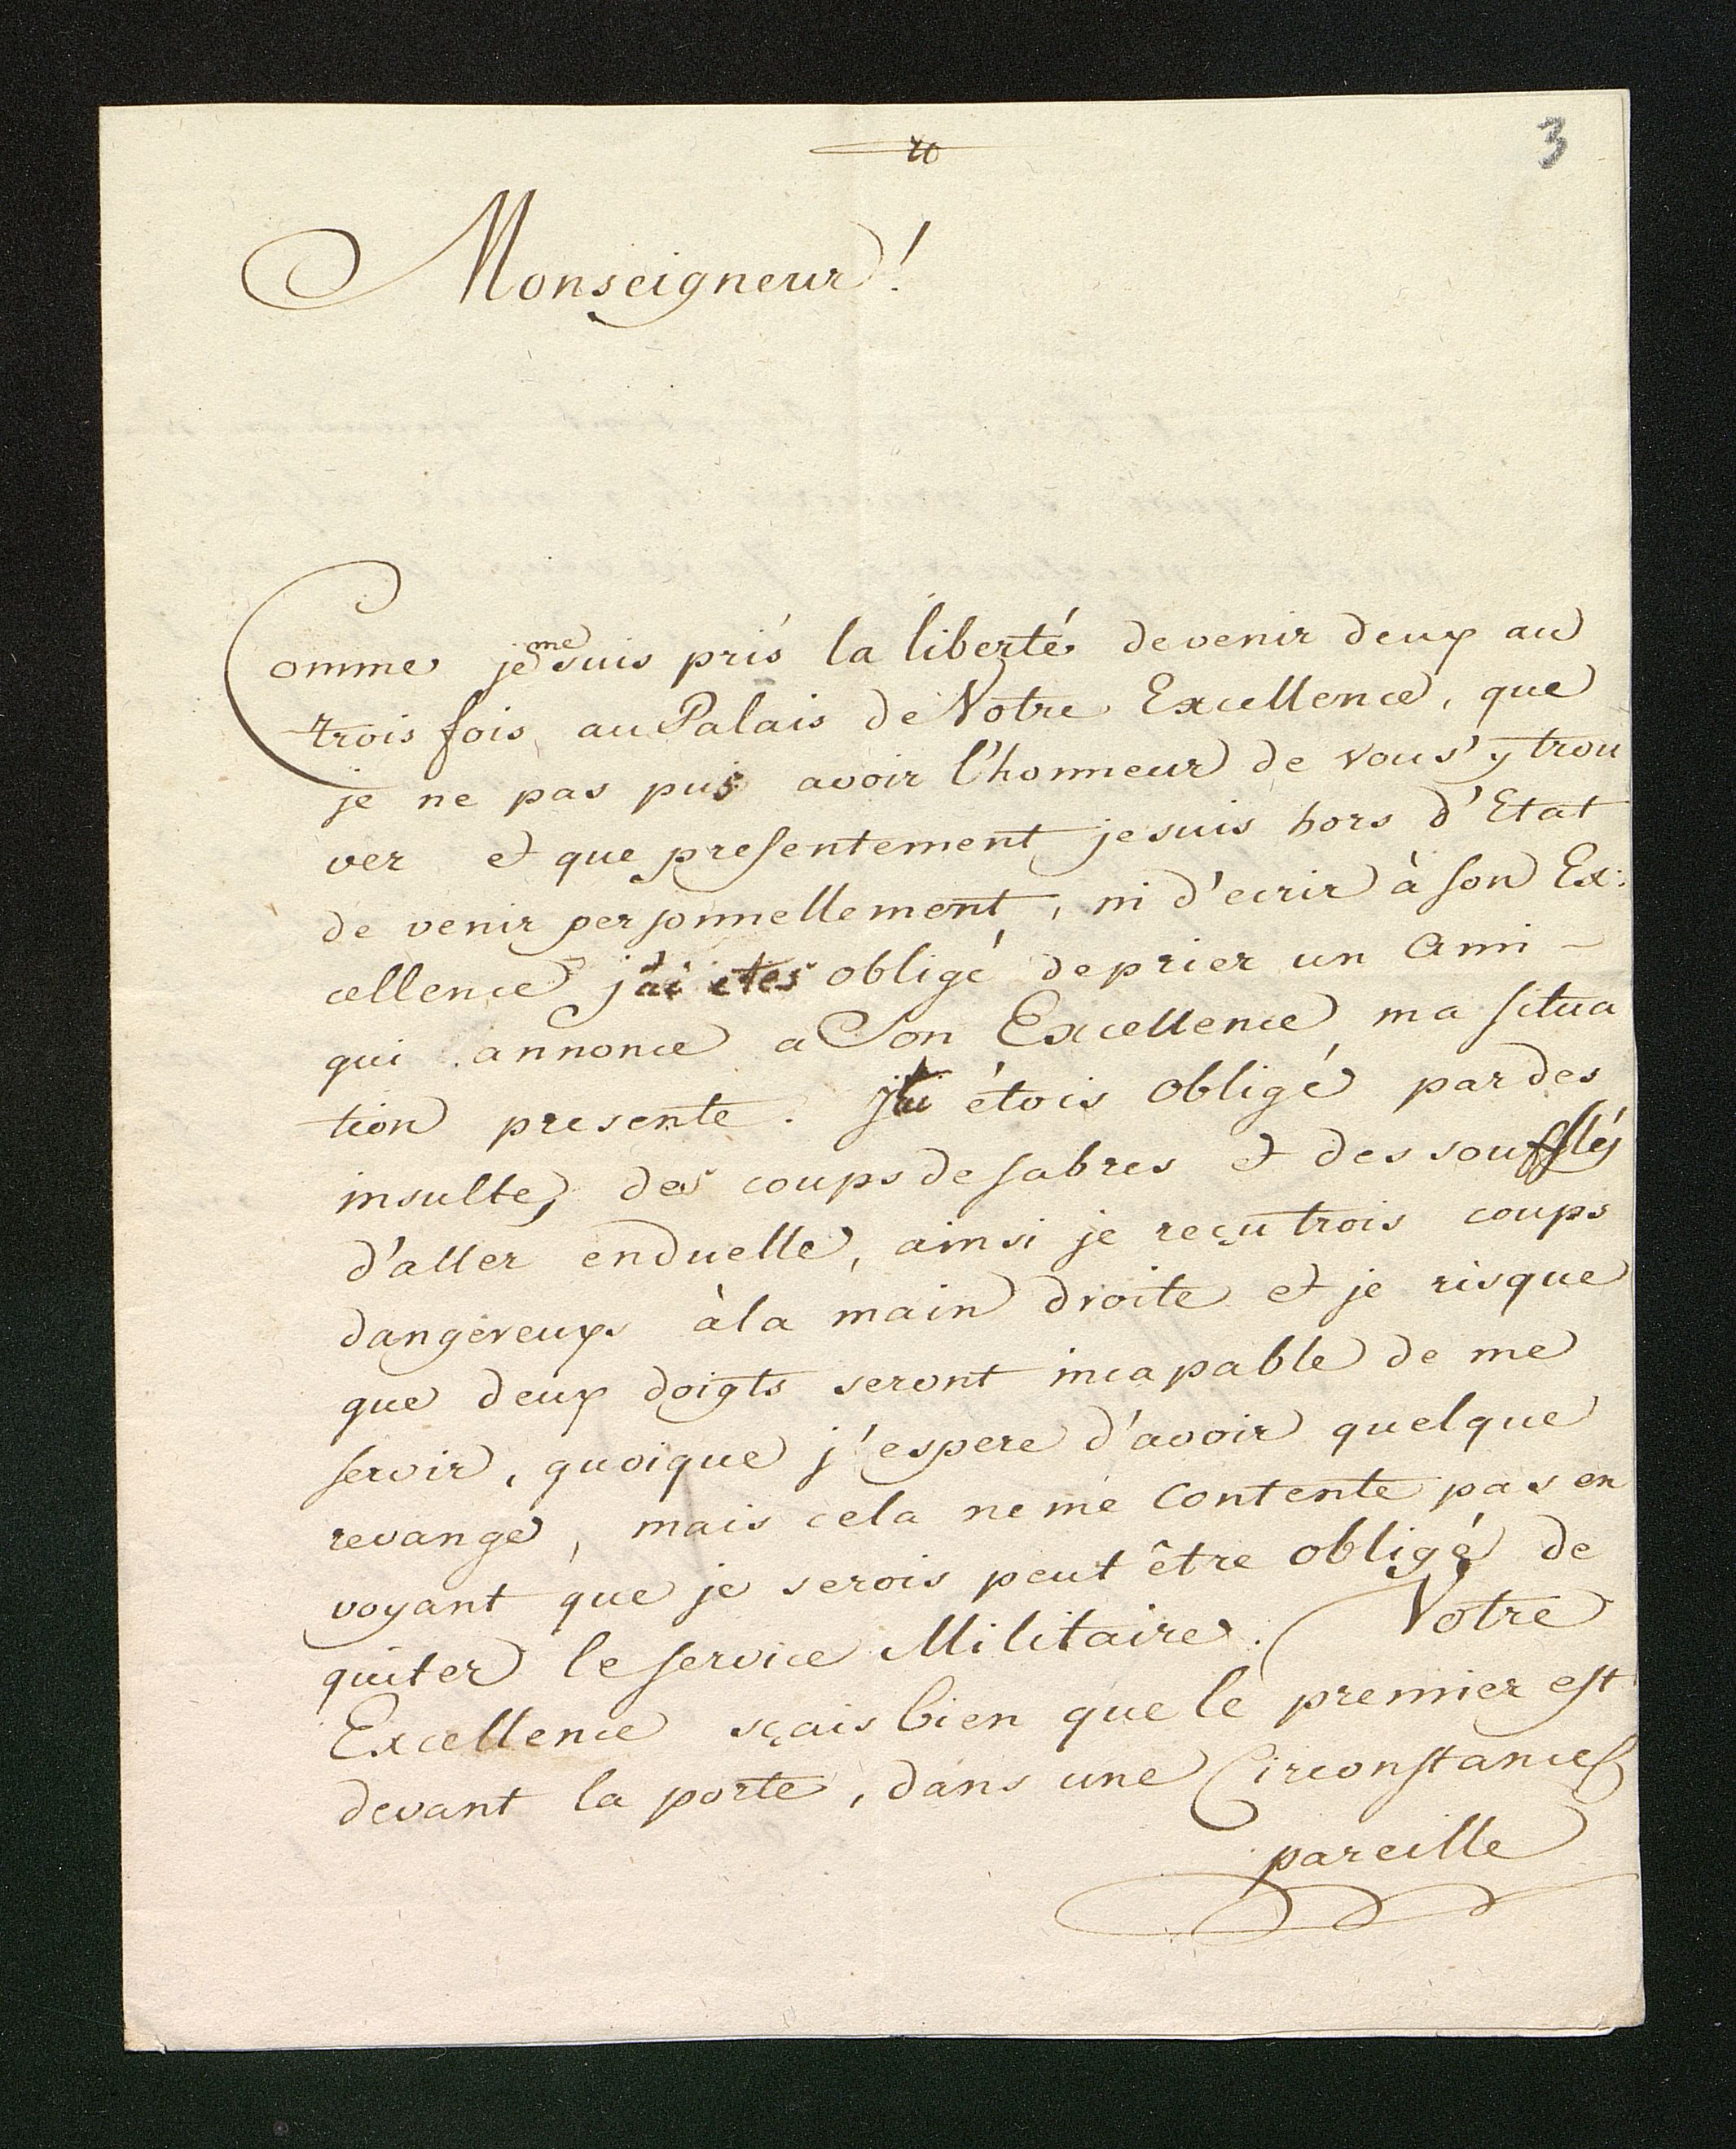 3
Monseigneur!
Comme je me suis pris la liberté de venir deux au
trois fois au Palais de Votre Excellence, que
je ne pas puis avoir l'honneur de vous' y trou
ver et que presentement je suis hors d'Etat
de venir personnellement, ni d'ecrir à son Ex:
cellence j'ai etes obligé de prier un Ami -
qui annonce a Son Excellence ma situa
tion presente. J' étois obligé par des
insulte, des coups de sabres et des soufflés
d'aller en duelle, ainsi je reçu trois coups
dangéreux à la main droite et je risque
que deux doigts seront incapable de me
servir, quoique j'espere d'avoir quelque
revange, mais cela ne me contente pas en
voyant que je serois peut être obligé de
quiter le service Militaire. Votre
Excellence sçais bien que le premier est
devant la porte, dans une Circonstances
pareille